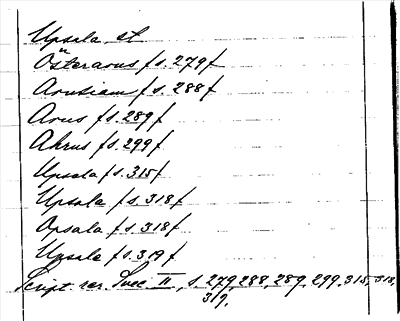 Upsala st
Österarous f s. 279 f
Arusiam f s. 288 f
Arus f s. 289 f
Ahrus f s. 299 f
Upsala f s. 315 f
Upsala f s. 318 f
Opsala f s. 318 f
Upsala f s. 319 f
Script. rer. Suec. II, s. 279, 288, 289, 299, 315, 318,
319.